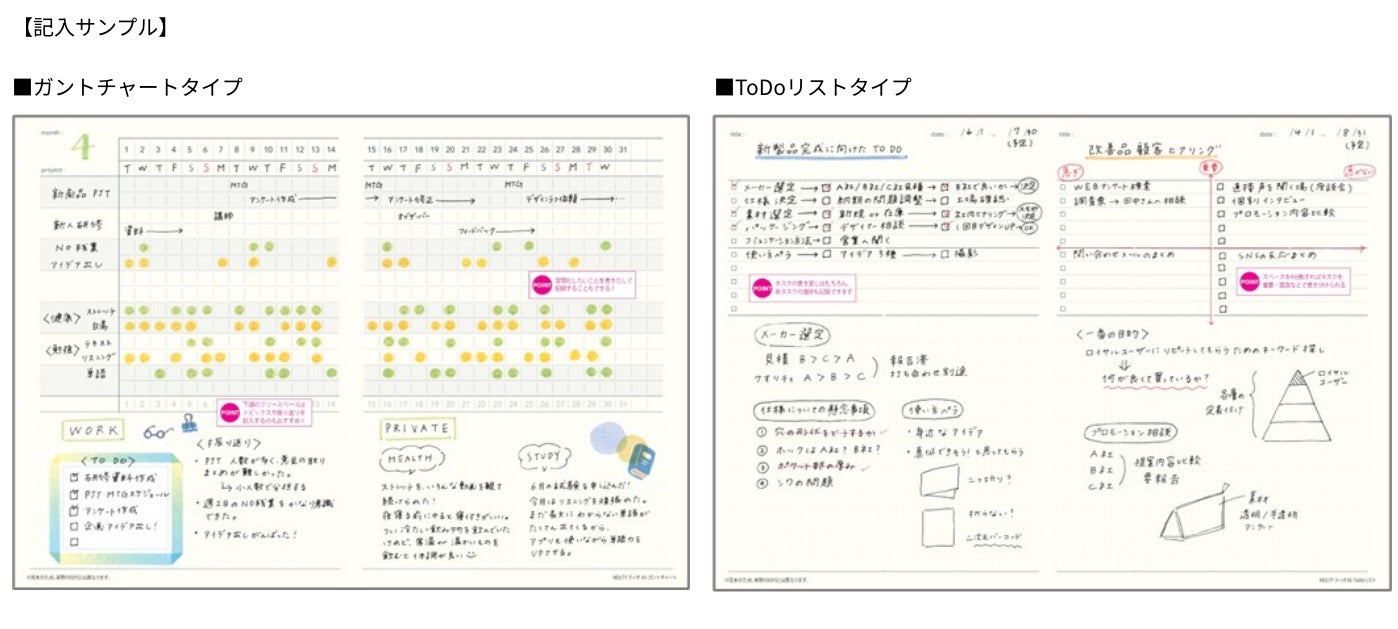 【記入サンプル】
■ガントチャートタイプ
month :
4
1 2 3 4 5 6 7 8 9 10 11 12 13 14
project :
T W T F S S M T W T F S S M
新商品 PJT
MTG
アンケート作成
新人研修
講師
資料
NO残業
アイデア出し
<健康>
ストレッチ
白湯
<勉強>
テキスト
リスニング
単語
15 16 17 18 19 20 21 22 23 24 25 26 27 28 29 30 31
T W T F S S M T W T F S S M T W
MTG
MTG
アンケート修正
デザイン依頼
オブザーバー
フィードバック
POINT
習慣化したいことを書きだして
記録することもできる!
POINT
下部のフリースペースは
トピックスや振り返りを
記入するのもおすすめ!
WORK
<TO DO>
研修資料作成
PJT MTGスケジュール
アンケート作成
企画アイデア出し!
<振り返り>
・PJT 人数が多く、意見の取り
まとめが難しかった。
↳ 小人数で分担する
・週2日のNO残業をかなり意識
できた。
・アイデア出しがんばった!
PRIVATE
HEALTH
ストレッチを、いろんな動画を観て
続けられた!
夜寝る前にやると寝つきがいい。
つい冷たい飲み物を飲んでいた
けれど、常温or温かいものを
飲むと体調が良い
STUDY
6月の試験を申し込んだ!
今月はリスニングを頑張れた。
まだ長文にわからない単語が
たくさん出てくるから、
アプリも使いながら単語力を
UPさせる。
※見本のため、実際の日付とは異なります。
NOLTY ティオ A5 ガントチャート
■ToDoリストタイプ
title :
新製品完成に向けた TO DO
date : /6/1 ~ /7/30
(予定)
メーカー選定 → A社/B社/C社見積 → B社で良いか → 決定
仕様決定 → 納期の問題調整 → 工場確認
素材選定 → 新規 or 在庫 → 社内ヒアリング
パッケージング → デザイナー相談 → 1回目デザインUP → OK
コミュニケーション方法 → 営業へ聞く
使い方ペラ → アイデア3種 → 撮影
POINT
タスクの書き出しはもちろん、
各タスクの進捗も記録できます
メーカー選定
見積 B > C > A
クオリティ A > B > C
報告済
打ち合わせ別途
仕様についての懸念事項
① 穴の形状をどうするか
② ホックはA社? B社?
③ ポケット部の厚み
④ シワの問題
使い方ペラ
・身近なアイデア
・真似できそう!と思ってもらう
二つ折り?
折らない?
二次元バーコード
title :
改善品 顧客ヒアリング
date : /4/1 ~ /8/31
(予定)
急ぎ
重要
急がない
WEBアンケート検索
調査票 → 田中さんへ相談
直接声を聞く場(座談会)
個別インタビュー
プロモーション内容比較
問い合わせメールのまとめ
SNSの反応まとめ
POINT
スペースを4分割すればタスクを
重要・緊急などで書き分けられる
<一番の目的>
ロイヤルユーザーにリピートしてもらうためのキーワード探し
何が良くて買っているか?
各層の
定義付け
ロイヤル
ユーザー
プロモーション相談
A社
B社
C社
提案内容比較
要報告
素材
透明/半透明
アンケート
※見本のため、実際の日付とは異なります。
NOLTY ティオ A5 ToDoリスト